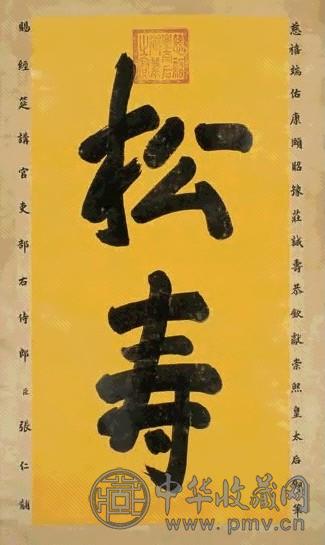 慈禧端佑康頤昭豫莊誠壽恭欽獻崇熙皇太后御筆
松寿
賜經筵講官吏部右侍郎臣張仁黼
中华收藏网
www.pmv.cn